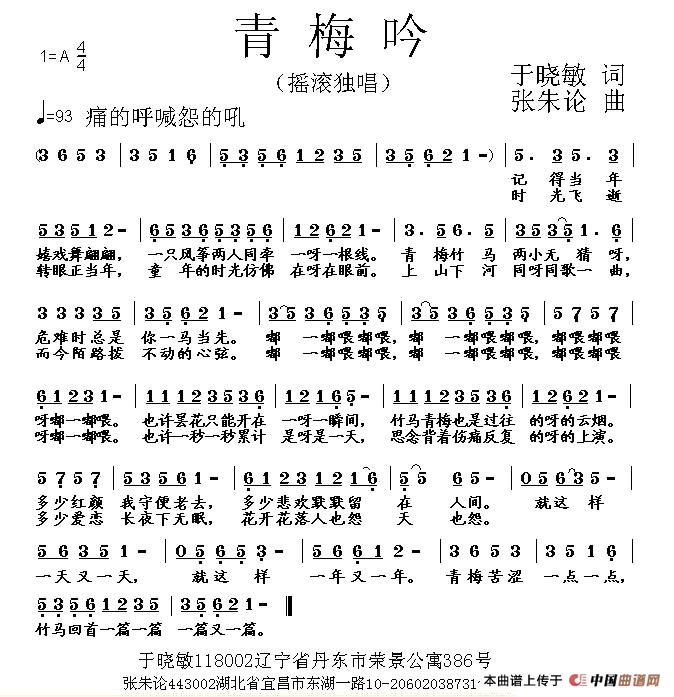 青梅吟
1=A 4/4
（摇滚独唱）
于晓敏 词
张朱论 曲
♩=93 痛的呼喊怨的吼
(3 6 5 3 | 3 5 1 6 | 5 3 5 6 1 2 3 5 | 3 5 6 2 1 -) | 5. 3 5. 3 |
记 得当 年
时 光飞 逝
5 3 5 1 2 - | 6 5 3 6 5 3 5 6 | 1 2 6 2 1 - | 3. 5 6. 5 | 3 5 3 5 1. 6 |
嬉戏舞翩翩， 一只风筝两人同牵 一呀一根线。 青 梅竹 马 两小无 猜 呀，
转眼正当年， 童 年的时光仿佛 在呀在眼前。 上 山下 河 同呀同歌一 曲，
3 3 3 3 5 | 3 5 6 2 1 - | 3 5 3 6 5 3 5 | 3 5 3 6 5 3 5 | 5 7 5 7 |
危难时总是 你一马当先。 嘟 一嘟喂嘟喂， 嘟 一嘟喂嘟喂， 嘟喂嘟喂
而今陌路拨 不动的心弦。 嘟 一嘟喂嘟喂， 嘟 一嘟喂嘟喂， 嘟喂嘟喂
6 1 2 3 1 - | 1 1 1 2 3 5 3 6 | 1 2 1 6 5 - | 1 1 1 2 3 5 3 6 | 1 2 6 2 1 - |
呀嘟一嘟喂。 也许昙花只能开在 一呀一瞬间， 竹马青梅也是过往 的呀的云烟。
呀嘟一嘟喂。 也许一秒一秒累计 是呀是一天， 思念背着伤痛反复 的呀的上演。
5 7 5 7 | 3 6 1 2 1 - | 6 3 2 1 2 3 1 6 | 5 5 6 5 - | 0 5 6 5 3 |
多少红颜 我守便老去， 多少悲欢默默留 在 人间。 就这 样
多少爱恋 长夜下无眠， 花开花落人也怨 天 也怨。
5 6 3 5 1 - | 0 5 6 5 3. | 5 6 5 2 1 - | 3 6 5 3 | 5 3 5 1 - |
一天又一天， 就这 样 一年又一年。 青梅苦涩 一点一点，
5 3 5 6 1 2 3 5 | 5 5 6 2 1 - ‖
竹马回首一篇一篇 一篇又一篇。
于晓敏118002辽宁省丹东市荣景公寓386号
张朱论443002湖北省宜昌市东湖一路10-20602038731
本曲谱上传于 中国曲谱网